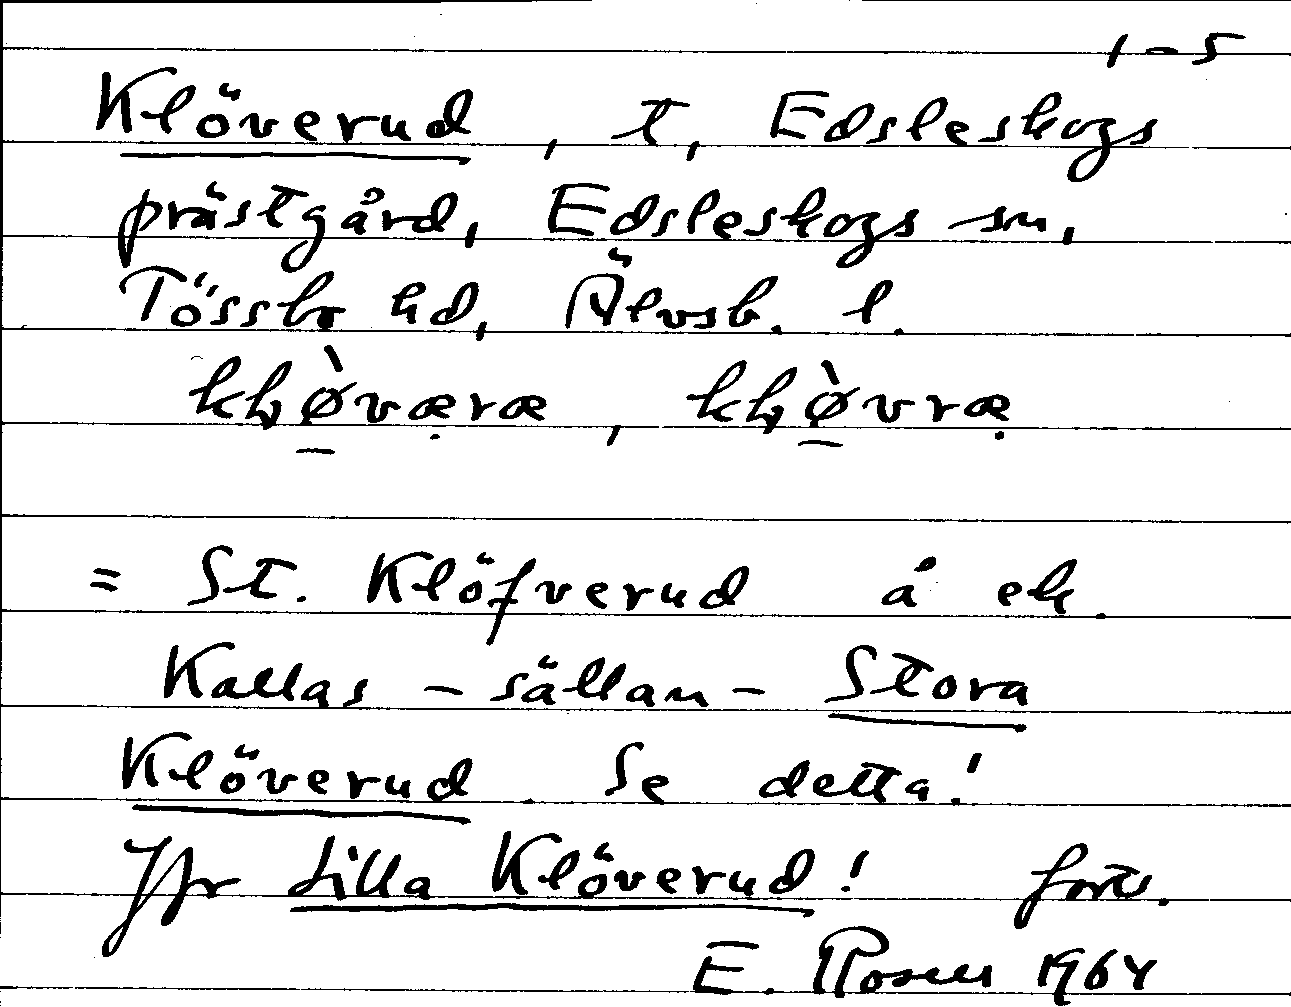 1-5
Klöverud, t, Edsleskogs
prästgård, Edsleskogs sn,
Tössbo hd, Älvsb. l.
= St. Klöfverud å ek.
Kallas - sällan - Stora
Klöverud. Se detta!
Jfr Lilla Klöverud! forts.
E. Rosell 1964